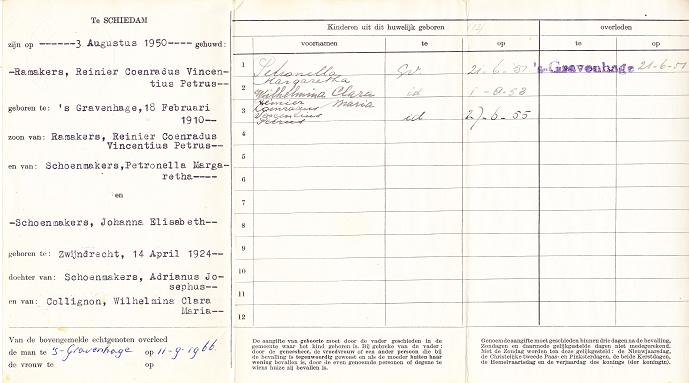 Te SCHIEDAM
zijn op ------3 Augustus 1950---- gehuwd:
-Ramakers, Reinier Coenradus Vincen-
tius Petrus--
geboren te: 's Gravenhage,18 Februari
1910--
zoon van: Ramakers, Reinier Coenradus
Vincentius Petrus--
en van: Schoenmakers,Petronella Marga-
retha----
en
-Schoenmakers, Johanna Elisabeth--
geboren te: Zwijndrecht, 14 April 1924--
dochter van: Schoenmakers, Adrianus Jo-
sephus--
en van: Collignon, Wilhelmina Clara
Maria--
Van de bovengemelde echtgenoten overleed
de man te 's-Gravenhage op 11-9-1966
de vrouw te op
Kinderen uit dit huwelijk geboren
overleden
voornamen te op te op
1 Petronella Gv. 21-6-51 's-Gravenhage 21-6-51
Margaretha
2 Wilhelmina Clara id 1-8-53
Maria
3 Reinier
Coenradus
Vincentius id 27-6-55
Petrus
4
5
6
7
8
9
10
11
12
De aangifte van geboorte moet door de vader geschieden in de
gemeente waar het kind geboren is. Bij gebreke van de vader:
door de geneesheer, de vroedvrouw of een ander persoon die bij
de bevalling is tegenwoordig geweest en als de moeder buiten haar
woning bevallen is, door de even genoemde personen of degene te
wiens huize zij bevallen is.
Genoemde aangifte moet geschieden binnen drie dagen na de bevalling,
Zondagen en daarmede gelijkgestelde dagen niet medegerekend.
Met de Zondag werden ten deze gelijkgesteld: de Nieuwjaarsdag,
de Christelijke tweede Paas- en Pinksterdagen, de beide Kerstdagen,
de Hemelvaartsdag en de verjaardag des konings (der koningin).